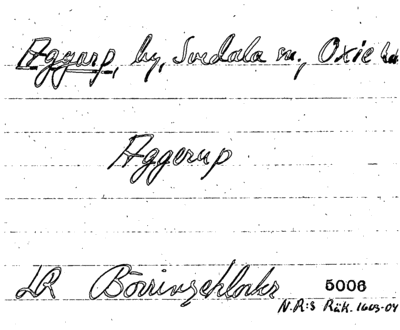 Aggarp, by, Svedala sn., Oxie hd
Aggerup
LR Börringekloster 5006
N.R:s Räk. 1603-04